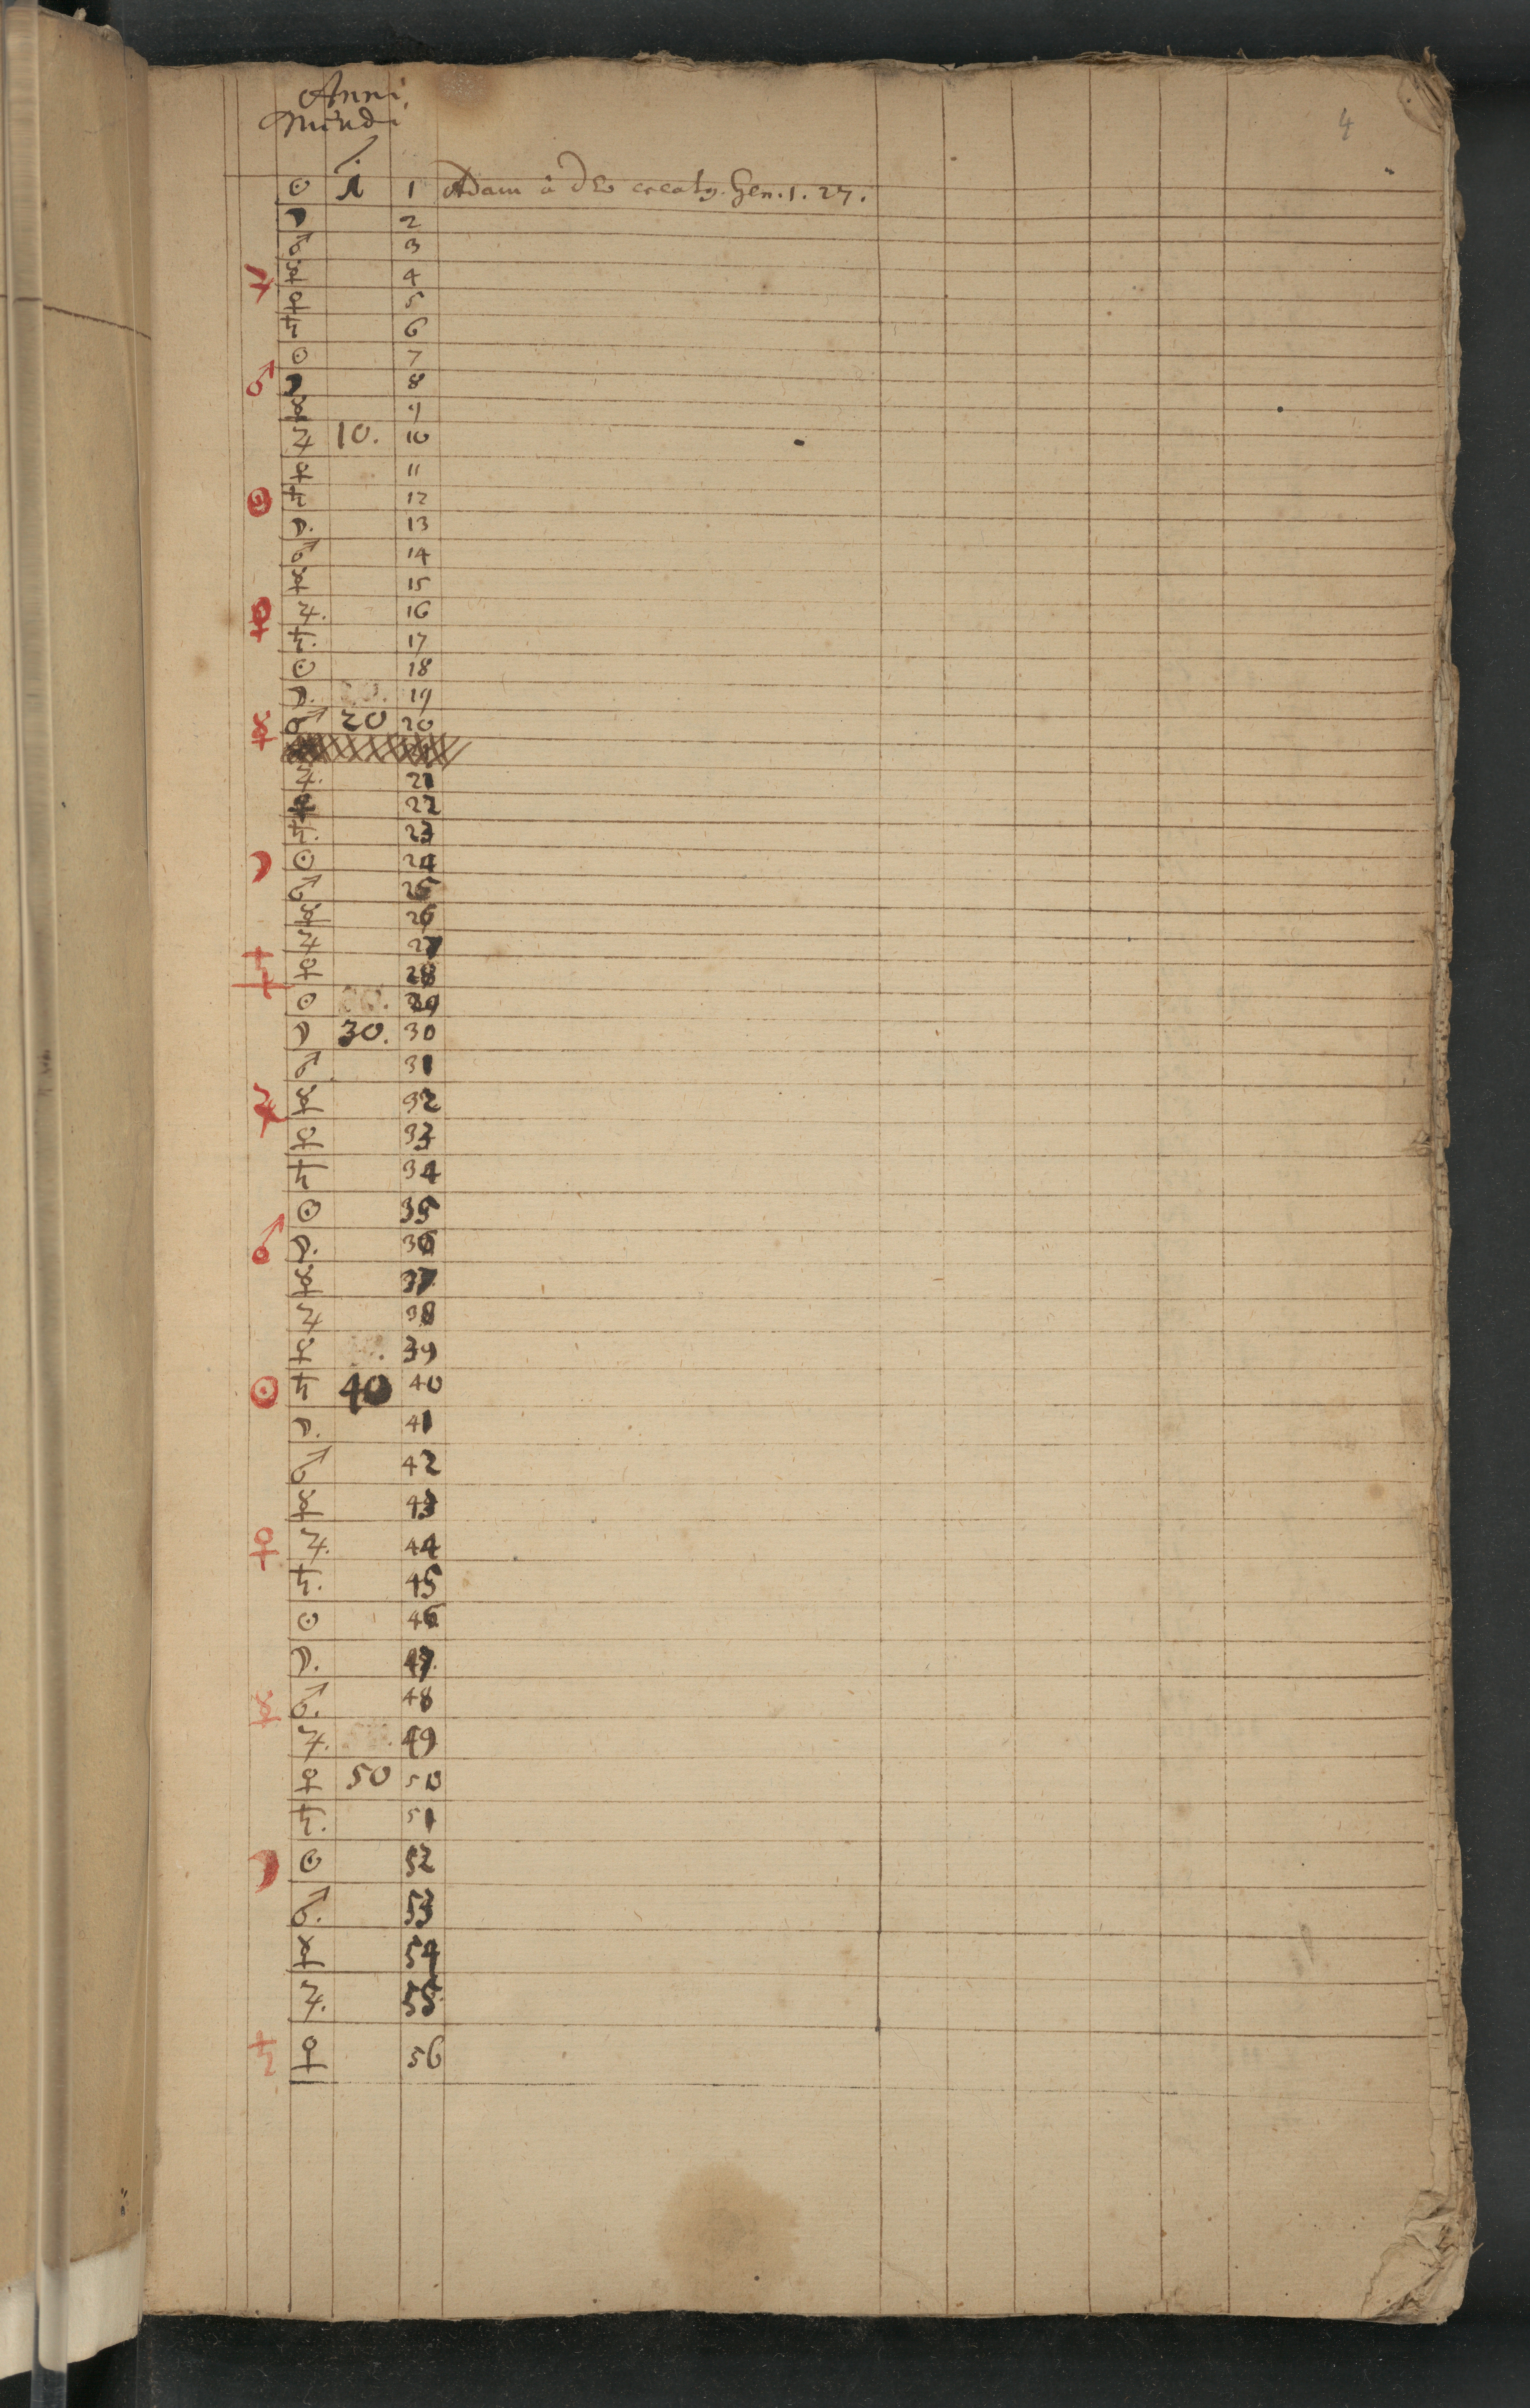 4
Anni
Mundi
☉ 1 1 Adam à Deo creatꝰ. Gen. 1. 27.
☽ 2
♂ 3
♃ ☿ 4
♀ 5
♄ 6
☉ 7
♂ ☽ 8
☿ 9
♃ 10. 10
♀ 11
☉ ♄ 12
☽. 13
♂ 14
☿ 15
♀ ♃. 16
♄. 17
☉ 18
☽. 19
☿ ♂ 20 20
♃. 21
♀ 22
♄. 23
☽ ☉ 24
♂ 25
☿ 26
♃ 27
♄ ♀ 28
☉ 29
☽ 30. 30
♂ 31
♃ ☿ 32
♀ 33
♄ 34
☉ 35
♂ ☽. 36
☿ 37
♃ 38
♀ 39
☉ ♄ 40 40
☽. 41
♂ 42
☿ 43
♀ ♃. 44
♄. 45
☉ 46
☽. 47.
☿ ♂. 48
♃. 49
♀ 50 50
♄. 51
☽ ☉ 52
♂. 53
☿ 54
♃. 55
♄ ♀ 56